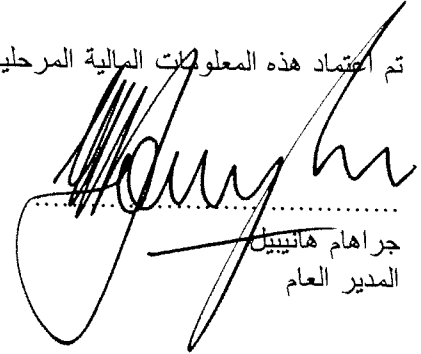 تم اعتماد هذه المعلومات المالية المرحلية
جراهام هانيبيل
المدير العام